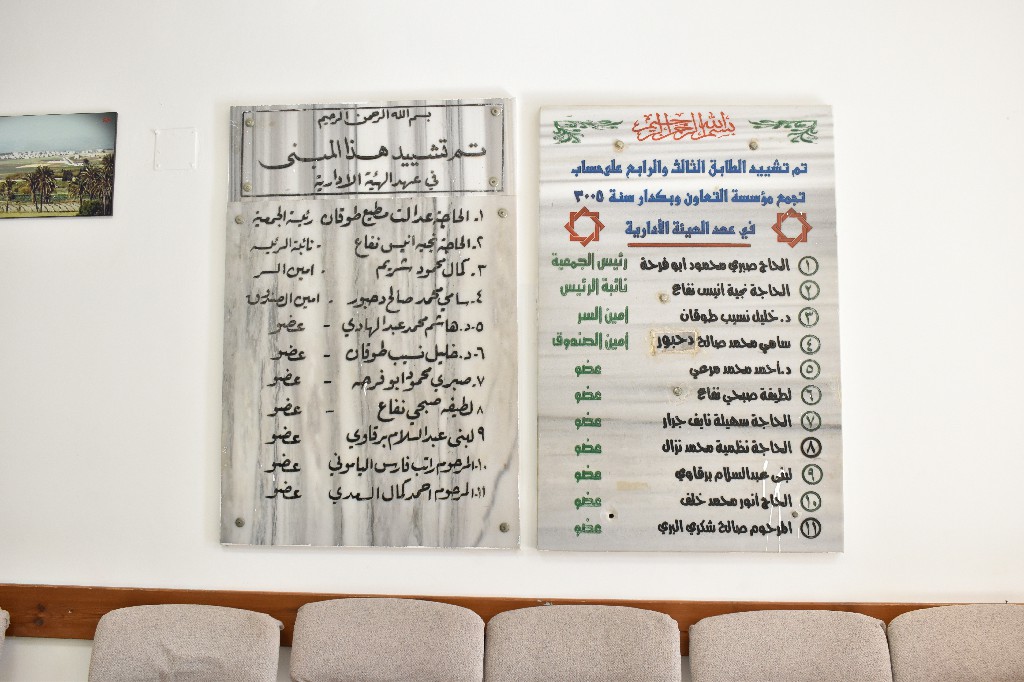 بسم الله الرحمن الرحيم
تم تشييد هذا المبنى
في عهد الهيئة الادارية
١. الحاجة عدالت مطيع طوقان رئيسة الجمعية
٢. الحاجة نجيه انيس نفاع . نائبة الرئيسه
٣. كمال محمود شريم . امين السر
٤. سامي محمد صالح دحبور . امين الصندوق
٥. د. هاشم محمد عبد الهادي - عضو
٦. د. خليل نسيب طوقان - عضو
٧. صبري محمود ابو فرحه - عضو
٨ لطيفه صبحي نفاع - عضو
٩ لبنى عبد السلام برقاوي عضو
١٠. المرحوم راتب فارس الياموني عضو
١١. المرحوم احمد كمال السعدي عضو
بسم الله الرحمن الرحيم
تم تشييد الطابق الثالث والرابع على حساب
تجمع مؤسسة التعاون وبكدار سنة ٢٠٠٥
في عهد الهيئة الأدارية
١ الحاج صبري محمود ابو فرحة رئيس الجمعية
٢ الحاجة نجية انيس نفاع نائبة الرئيس
٣ د. خليل نسيب طوقان أمين السر
٤ سامي محمد صالح دحبور أمين الصندوق
٥ د. أحمد محمد مرعي عضو
٦ لطيفة صبحي نفاع عضو
٧ الحاجة سهيلة نايف جرار عضو
٨ الحاجة نظمية محمد نزال عضو
٩ لبنى عبدالسلام برقاوي عضو
١٠ الحاج انور محمد خلف عضو
١١ المرحوم صالح شكري البري عضو